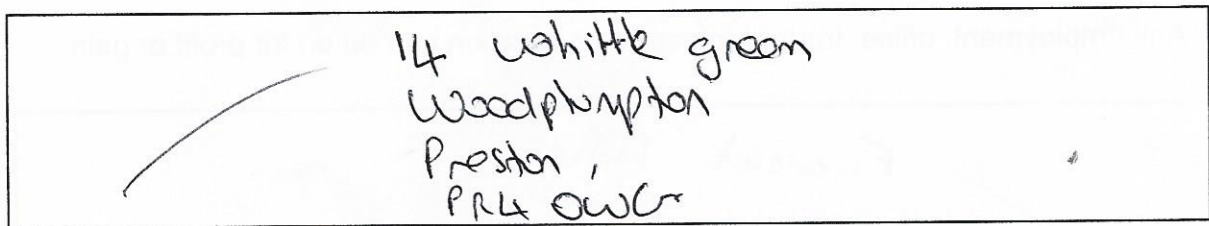 14 Whittle green
Woodplumpton
Preston,
PR4 0WG